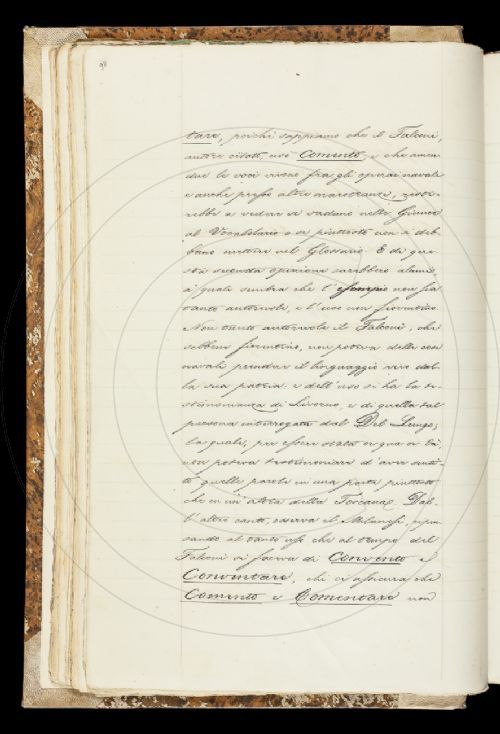 98
tare, perché sappiamo che il Falconi,
autore citato, usò Comento, e che amen-
due le voci vivono fra gli operai navali
e anche presso altre maestranze, reste-
rebbe a vedere se vadano nelle Giunte
al Vocabolario o se piuttosto non si deb-
bano mettere nel Glossario. E di que-
sta seconda opinione sarebbero alcuni
a' quali sembra che l'esempio non sia
tanto autorevole, e l'uso non fiorentino.
Non tanto autorevole il Falconi, che
sebbene fiorentino, non poteva delle cose
navali prendere il linguaggio vivo dal-
la sua patria: e dell'uso si ha la te-
stimonianza di Livorno, e di quella tal
persona interrogata dal Del Lungo,
la quale, per essere stata or qua or là,
non poteva testimoniare d'aver senti-
to quelle parole in una parte piuttosto
che in un'altra della Toscana. Dal-
l'altro canto, osserva il Milanesi, 
sando al tanto che al tempo del
Falconi si faceva di Convento e
Conventare, chi ci assicura che
Comento e Comentare non